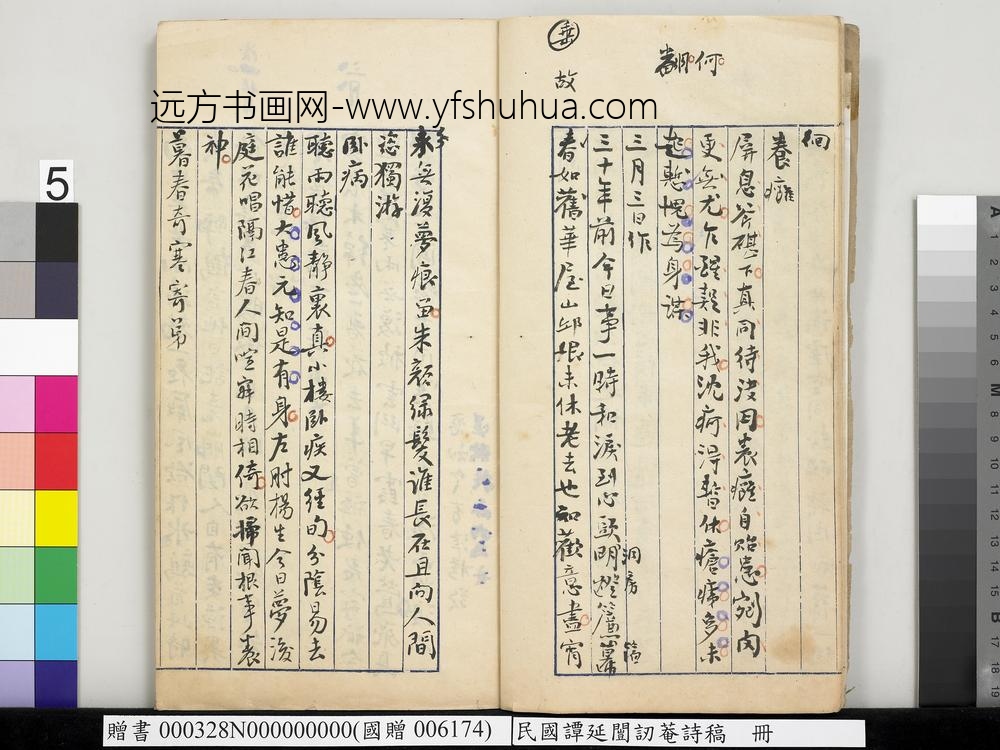 何
翻
故
徊
養癰
屏息斧碪下真同待決囚裹癰自貽患剜肉
更無尤乍醒疑非我沈疴得暫休瘡痍多未
起慙愧為身謀
三月三日作
三十年前今日事一時和淚到心頭明燈簾幕
洞房
春如舊華屋山邱恨未休老去也知歡意盡宵
來無復夢痕留朱顏綠髮誰長在且向人間
恣獨游
臥病
聽雨聽風靜裏真小樓臥疾又經旬分陰易去
誰能惜大患元知是有身左肘楊生今日夢後
庭花唱隔江春人間喧寂時相倚欲掃聞根事表
神
暮春奇寒寄弟
远方书画网-www.yfshuhua.com
5
贈書 000328N000000000(國贈 006174)
民國譚延闓訒菴詩稿 冊
A 1 2 3 4 5 6 7 8 9 10 11 12 13 14 15 B 17 18 19